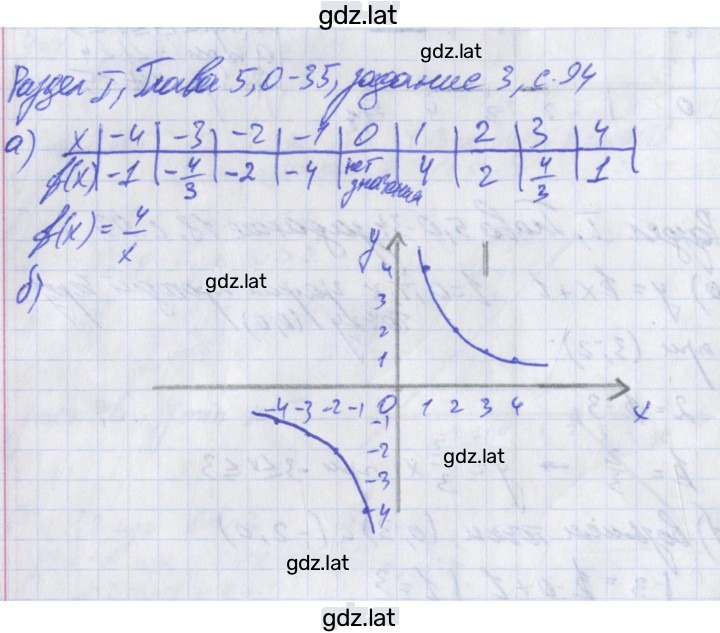 gdz.lat
gdz.lat
Раздел I, Глава 5, 0-35, задание 3, с.94
а) x | -4 | -3 | -2 | -1 | 0 | 1 | 2 | 3 | 4
f(x) | -1 | -4/3 | -2 | -4 | нет значения | 4 | 2 | 4/3 | 1
f(x) = 4/x
б)
gdz.lat
y
4
3
2
1
-4 -3 -2 -1 0 1 2 3 4 x
-1
-2
-3
-4
gdz.lat
gdz.lat
gdz.lat